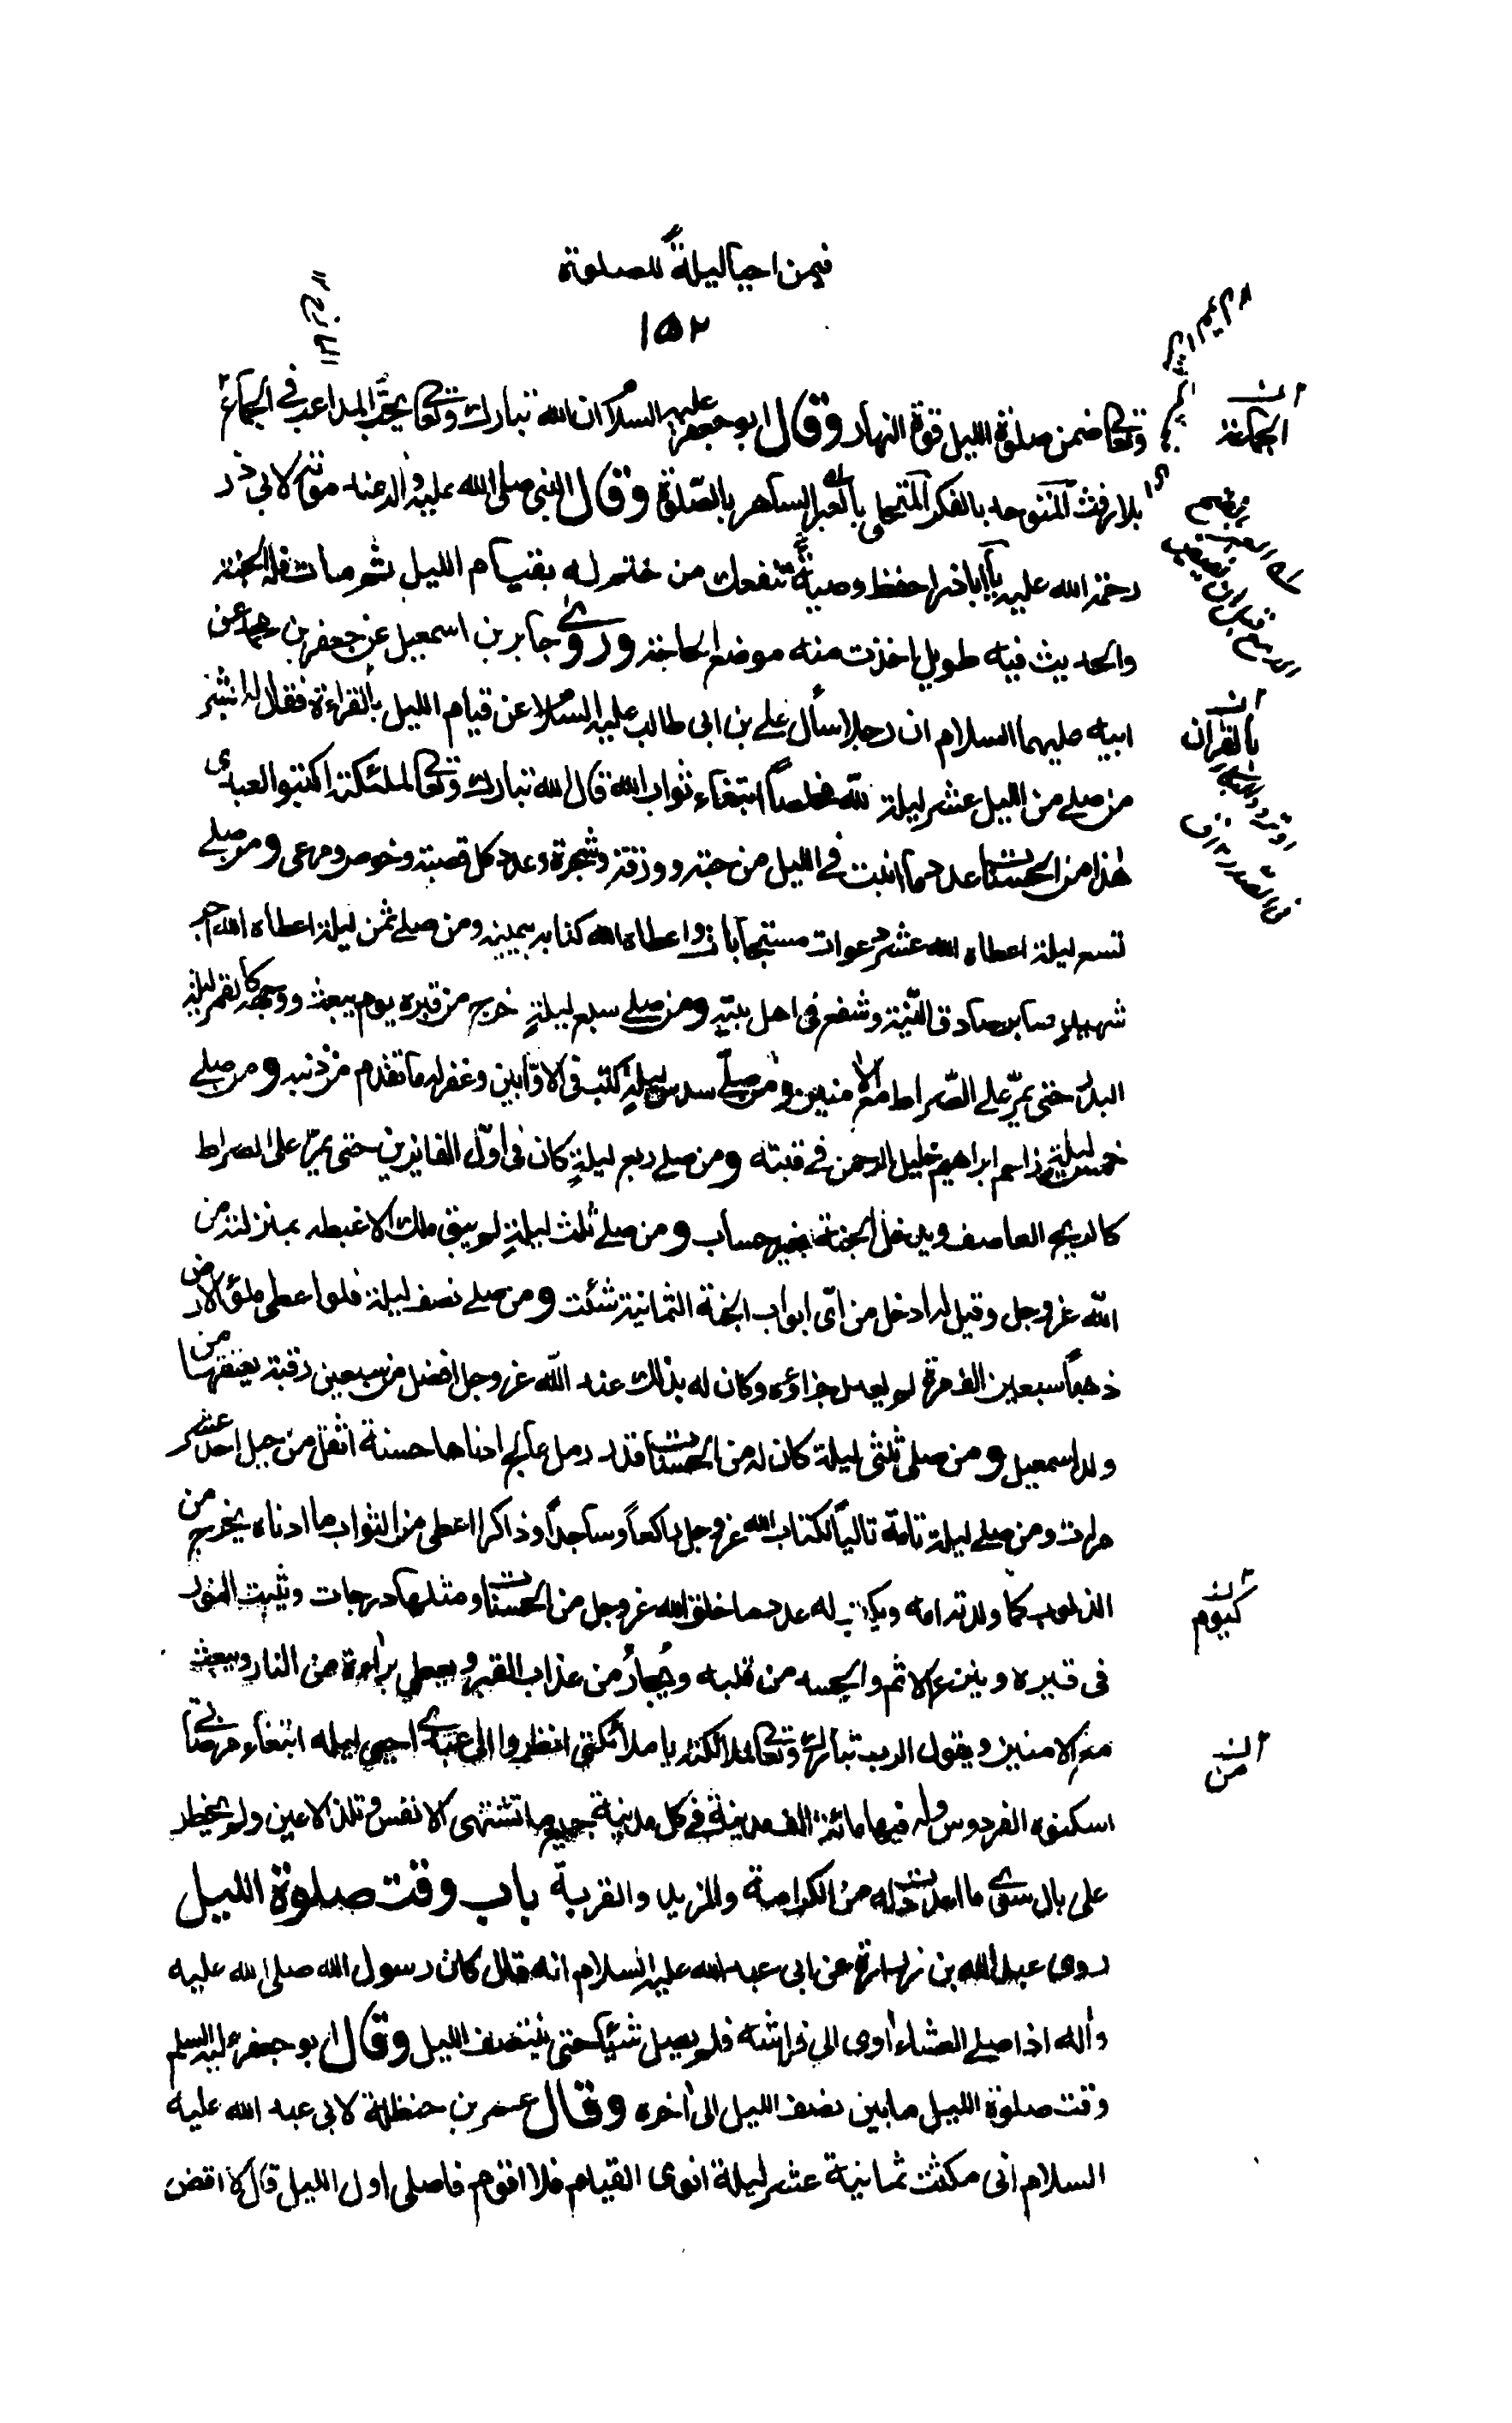 فيمن احيا ليلةً للصلوة
١٥٢
وتعالى ضمن صلوة الليل قوة النهار وقال ابو جعفر عليه السلام ان الله تبارك وتعالى يحبّ المداعب في الجماعة
بلا رفث المتوحد بالفكر المتحلى بالعبر الساهر بالصّلوة وقال النبي صلى الله عليه واله عند موته لابي ذر
رحمة الله عليه يا اباذر احفظ وصية نبيك تنفعك من ختم له بقيام الليل ثم مات فله الجنة
والحديث فيه طويل اخذت منه موضع الحاجة وروى جابر بن اسمعيل عن جعفر بن محمد عن
ابيه عليهما السلام ان رجلا سأل علي بن ابى طالب عليه السلام عن قيام الليل بالقراءة فقال له ابشر
من صلى من الليل عشر ليلة لله مخلصاً ابتغاء ثواب الله قال الله تبارك وتعالى لملئكته اكتبوا لعبدى
هذا من الحسنات عدد ما انبت في الليل من حبة وورقة وشجرة وعدد كل قصبة وخوص ومرعى ومن صلى
تسع ليلة اعطاه الله عشر دعوات مستجابات واعطاه الله كتابه بيمينه ومن صلى ثمن ليلة اعطاه الله اجر
شهيد صابر صادق النّية وشفع في اهل بيته ومن صلى سبع ليلةٍ خرج من قبره يوم يبعث ووجهه كالقمر ليلة
البدر حتى يمرّ على الصّراط مع الامنين ومن صلّى سدس ليلةٍ كتب في الاوّابين وغفر له ما تقدم من ذنبه ومن صلى
خمس ليلةٍ زاحم ابراهيم خليل الرحمن في قبته ومن صلى ربع ليلةٍ كان في اوّل الفايزين حتى يمرّ على الصراط
كالريح العاصف ويدخل الجنة بغير حساب ومن صلى ثلث ليلةٍ لم يبق ملك الا غبطه بمنزلته من
اللّه عز وجل وقيل له ادخل من اىّ ابواب الجنة الثمانية شئت ومن صلى نصف ليلة فلو اعطى ملؤ الارض
ذهباً سبعين الف مرة لم يعدل جزاؤه وكان له بذلك عند اللّه عز وجل افضل من سبعين رقبة يعتقها من
ولد اسمعيل ومن صلى ثلثى ليلة كان له من الحسنات قدر رمل عالج ادناها حسنة اثقل من جبل احد عشر
مرات ومن صلى ليلة تامّة تالياً لكتاب الله عز وجل راكعاً وساجداً وذاكرا اعطى من الثواب ما ادناه يخرج من
الذنوب كما ولدته امه ويكتب له عدد ما خلق الله عز وجل من الحسنات ومثلها درجات ويثبت النور
في قبره وينزع الاثم والحسد من قلبه ويُجارُ من عذاب القبر ويعطى براءة من النار ويبعث
مع الامنين ويقول الرب تبارك وتعالى لملائكته يا ملائكتى انظروا الى عبدى احيى ليله ابتغاء مرضاتى
اسكنوه الفردوس وله فيها مائة الف مدينة في كل مدينة جميع ما تشتهى الانفس وتلذ الاعين ولم يخطر
على بال سوى ما اعددت له من الكرامة والمزيد والقربة باب وقت صلوة الليل
روى عبد الله بن زرارة عن ابى عبد الله عليه السلام انه قال كان رسول الله صلى الله عليه
واله اذا صلى العشاء اوى الى فراشه فلم يصل شيئا حتى ينتصف الليل وقال ابو جعفر عليه السلم
وقت صلوة الليل ما بين نصف الليل الى اخره وقال عمر بن حنظلة لابى عبد الله عليه
السلام انى مكثت ثمانية عشر ليلة انوى القيام فلا اقوم فاصلى اول الليل قال لا اقض
الجماعة
بالقران
كيوم
من